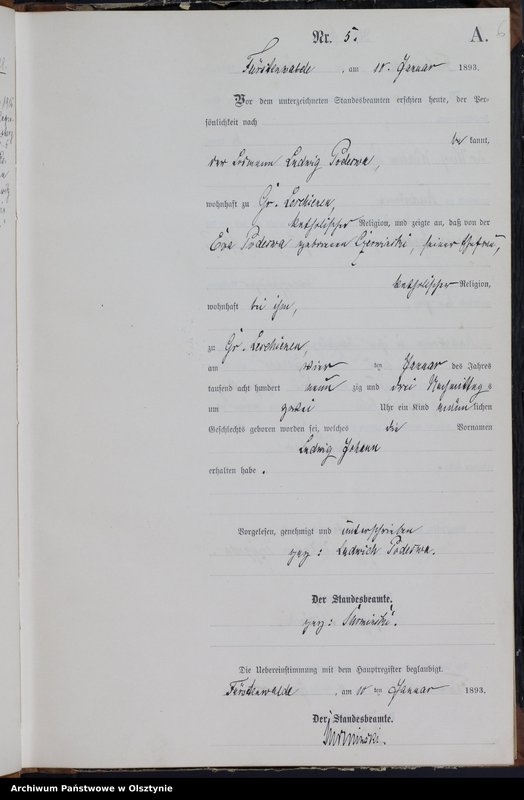 Nr. 5.
A.
6
Fürstenwalde, am 10. Januar 1893.
Vor dem unterzeichneten Standesbeamten erschien heute, der Per-
sönlichkeit nach
be kannt,
der Losmann Ludwig Poderwa,
wohnhaft zu Gr. Lerchienen,
katholischer Religion, und zeigte an, daß von der
Eva Poderwa geborenen Czerwinski, seiner Ehefrau,
katholischer Religion,
wohnhaft bei ihm,
zu Gr. Lerchienen,
am vier ten Januar des Jahres
tausend acht hundert neun zig und drei Nachmittags
um zwei Uhr ein Kind männlichen
Geschlechts geboren worden sei, welches die Vornamen
Ludwig Johann
erhalten habe.
Vorgelesen, genehmigt und unterschrieben
gez: Ludwich Poderwa.
Der Standesbeamte.
gez:
Die Uebereinstimmung mit dem Hauptregister beglaubigt.
Fürstenwalde, am 10 ten Januar 1893.
Der Standesbeamte.
Archiwum Państwowe w Olsztynie